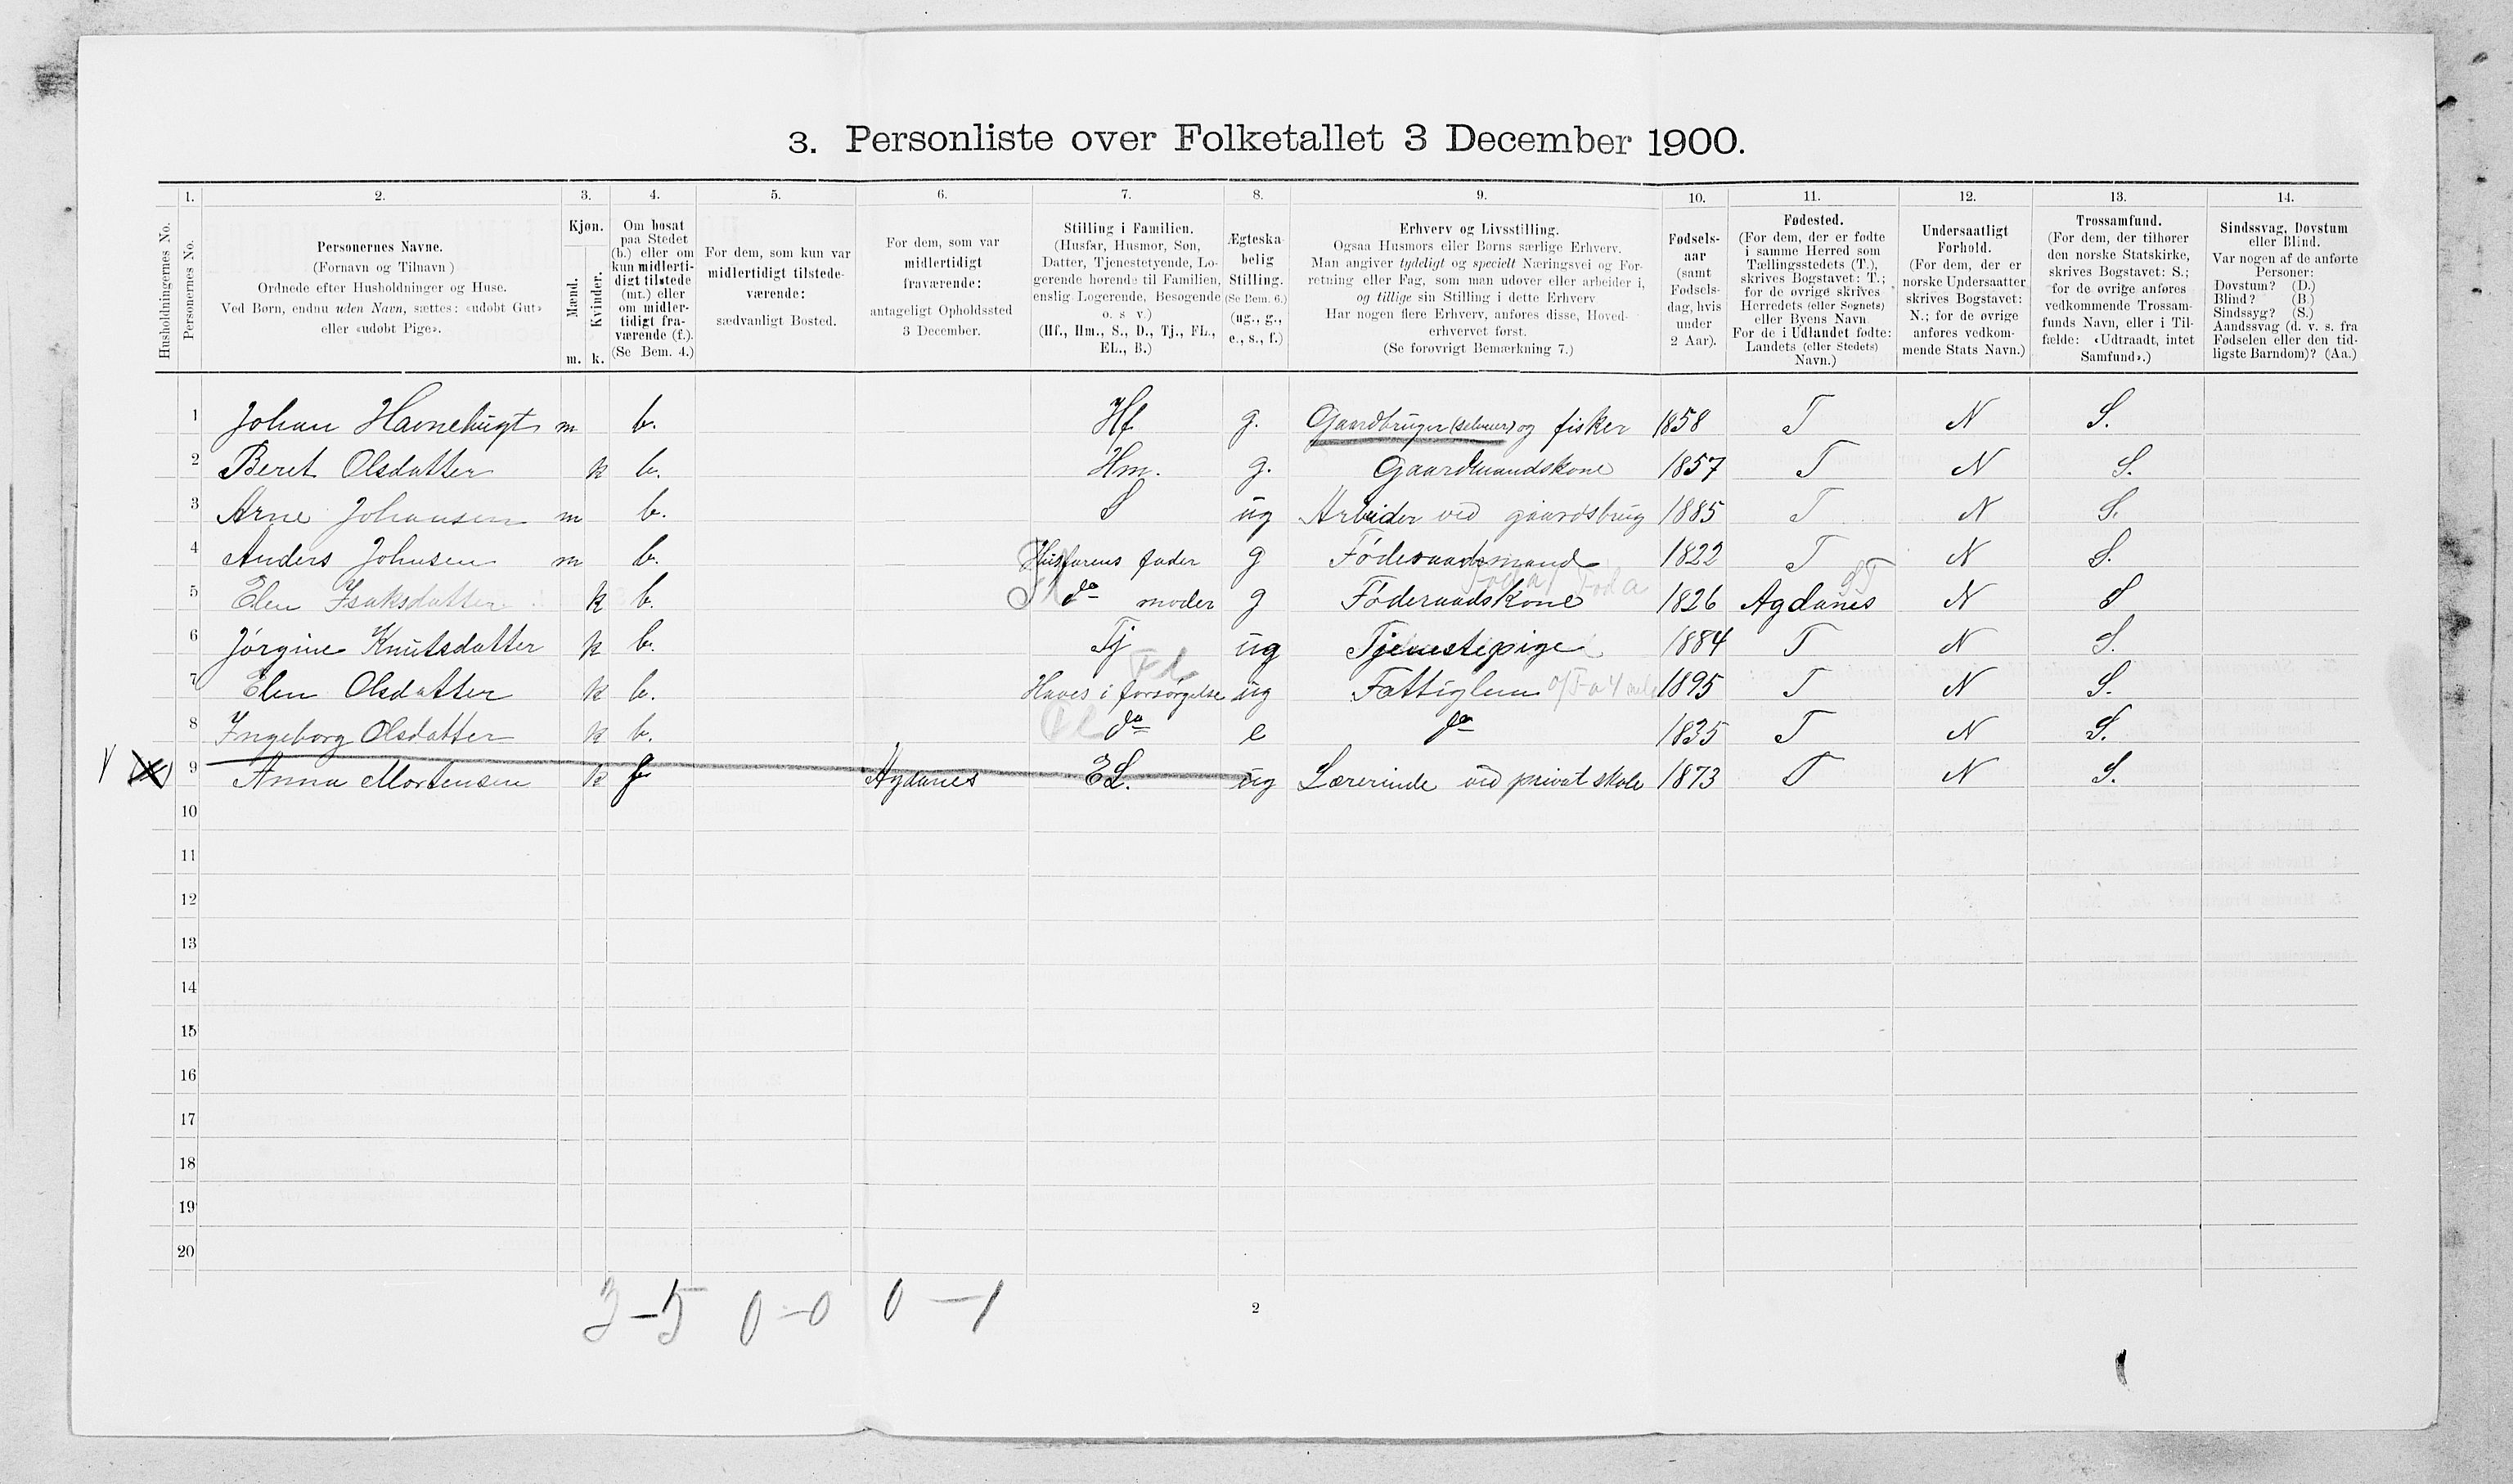 3. Personliste over Folketallet 3 December 1900.
1. 2. 3. 4. 5. 6. 7. 8. 9. 10. 11. 12. 13. 14.
Husholdningernes No.
Personernes No.
Personernes Navne.
(Fornavn og Tilnavn)
Ordnede efter Husholdninger og Huse.
Ved Børn, endnu uden Navn, sættes: «udøbt Gut»
eller «udøbt Pige».
Kjøn.
Mænd.
Kvinder.
m. k.
Om bosat
paa Stedet
(b.) eller om
kun midlerti-
digt tilstede
(mt.) eller
om midler-
tidigt fra-
værende (f.).
(Se Bem. 4.)
For dem, som kun var
midlertidigt tilstede-
værende:
sædvanligt Bosted.
For dem, som var
midlertidigt
fraværende:
antageligt Opholdssted
3 December.
Stilling i Familien.
(Husfar, Husmor, Søn,
Datter, Tjenestetyende, Lo-
gerende hørende til Familien,
enslig Logerende, Besøgende
o. s. v.)
(Hf., Hm., S., D., Tj., FL.,
EL., B.)
Ægteska-
belig
Stilling.
(Se Bem. 6.)
(ug., g.,
e., s., f.)
Erhverv og Livsstilling.
Ogsaa Husmors eller Børns særlige Erhverv.
Man angiver tydeligt og specielt Næringsvei og For-
retning eller Fag, som man udøver eller arbeider i,
og tillige sin Stilling i dette Erhverv
Har nogen flere Erhverv, anføres disse, Hoved-
erhvervet først.
(Se forøvrigt Bemærkning 7.)
Fødsels-
aar
(samt
Fødsels-
dag, hvis
under
2 Aar).
Fødested.
(For dem, der er fødte
i samme Herred som
Tællingsstedets (T.),
skrives Bogstavet: T.;
for de øvrige skrives
Herredets (eller Sognets)
eller Byens Navn
For de i Udlandet fødte:
Landets (eller Stedets)
Navn.)
Undersaatligt
Forhold.
(For dem, der er
norske Undersaatter
skrives Bogstavet:
N.; for de øvrige
anføres vedkom-
mende Stats Navn.)
Trossamfund.
(For dem, der tilhører
den norske Statskirke,
skrives Bogstavet: S.;
for de øvrige anføres
vedkommende Trossam-
funds Navn, eller i Til-
fælde: «Udtraadt, intet
Samfund».)
Sindssvag, Døvstum
eller Blind.
Var nogen af de anførte
Personer:
Døvstum? (D.)
Blind? (B.)
Sindssyg? (S.)
Aandssvag (d. v. s. fra
Fødselen eller den tid-
ligste Barndom)? (Aa.)
1 Johan Havnebugt m b. Hf g. Gaardbruger (selveier) og fisker 1858 T N S.
2 Beret Olsdatter k b. Hm. g. Gaardmandskone 1857 T N S.
3 Arne Johansen m b. S ug Arbeider ved gaardsbrug 1885 T N S.
4 Anders Johnsen m b. Husfarens fader g Føderaadsmand 1822 T N S.
5 Elen Isaksdatter k b. do moder g Føderaadskone 1826 Agdanes N S
6 Jørgine Knutsdatter k b. Tj ug Tjenestepige 1884 T N S.
7 Elen Olsdatter k b. Haves i forsørgelse ug Fattiglem 1895 T N S.
8 Ingeborg Olsdatter k b. do e do 1835 T N S.
9 Anna Mortensen k f Agdanes EL. ug Lærerinde ved privat skole 1873 T N S.
10
11
12
13
14
15
16
17
18
19
20
3-5 0-0 0-1
2